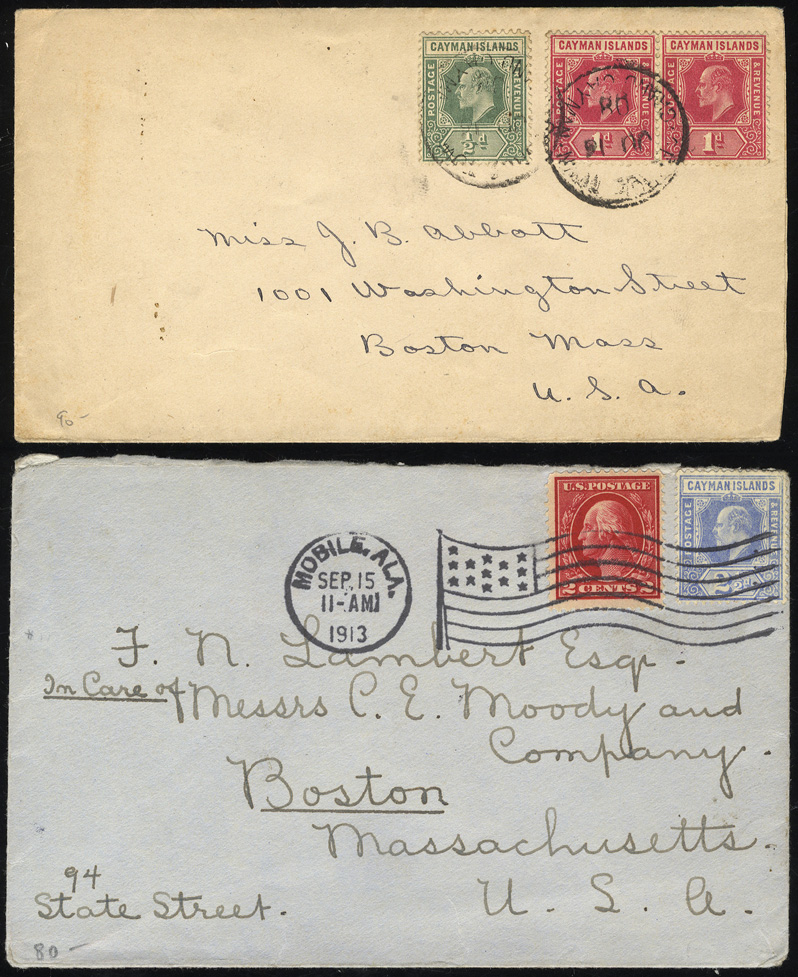 CAYMAN ISLANDS CAYMAN ISLANDS CAYMAN ISLANDS
POSTAGE & REVENUE POSTAGE & REVENUE POSTAGE & REVENUE
½d 1d 1d
Miss J. B. Abbott
1001 Washington Street
Boston Mass
U. S. A.
90-
U.S. POSTAGE
2 CENTS 2
CAYMAN ISLANDS
POSTAGE & REVENUE
2½d
MOBILE, ALA.
SEP. 15
11-AM
1913
F. N. Lambert Esqr.
In Care of Messrs C. E. Moody and
Company.
Boston
Massachusetts.
94
State Street.
U. S. A.
80-